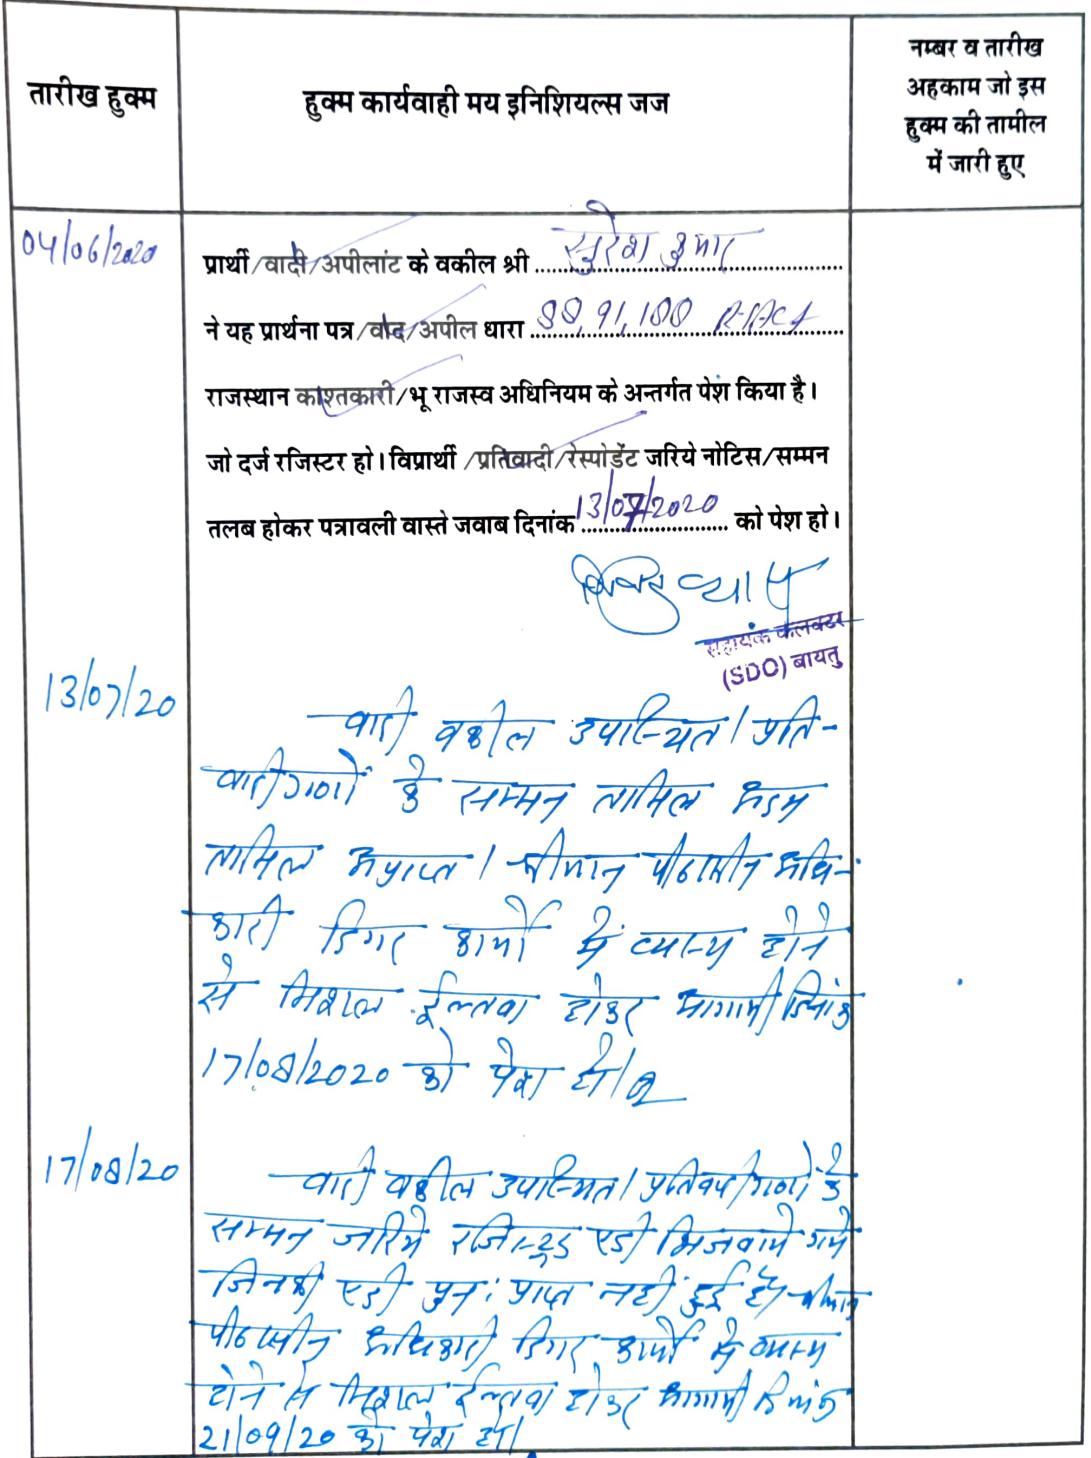 तारीख हुक्म
हुक्म कार्यवाही मय इनिशियल्स जज
नम्बर व तारीख
अहकाम जो इस
हुक्म की तामील
में जारी हुए
04/06/2020
प्रार्थी/वादी/अपीलांट के वकील श्री सुरेश कुमार
ने यह प्रार्थना पत्र/वाद/अपील धारा 88,91,188 R.T.Act
राजस्थान काश्तकारी/भू राजस्व अधिनियम के अन्तर्गत पेश किया है।
जो दर्ज रजिस्टर हो। विप्रार्थी/प्रतिवादी/रेस्पोडेंट जरिये नोटिस/सम्मन
तलब होकर पत्रावली वास्ते जवाब दिनांक 13/07/2020 को पेश हो।
सहायक कलक्टर
(SDO) बायतु
13/07/20
वादी वकील उपस्थित। प्रति-
वादीगणों के सम्मन तामिल अदम
तामिल अप्राप्त। श्रीमान पीठासीन अधि-
कारी डिगर कार्यो में व्यस्थ होने
से मिशल ईल्तवा होकर आगामी दिनांक
17/08/2020 को पेश हो।
17/08/20
वादी वकील उपस्थित। प्रतिवादीगणों के
सम्मन जरिये रजिस्ट्रड एडी भिजवाये गये
जिनकी एडी पुन: प्राप्त नही हुई है। श्रीमान
पीठासीन अधिकारी डिगर कार्यो मे व्यस्थ
होने से मिशल ईल्तवा होकर आगामी दिनांक
21/09/20 को पेश हो।